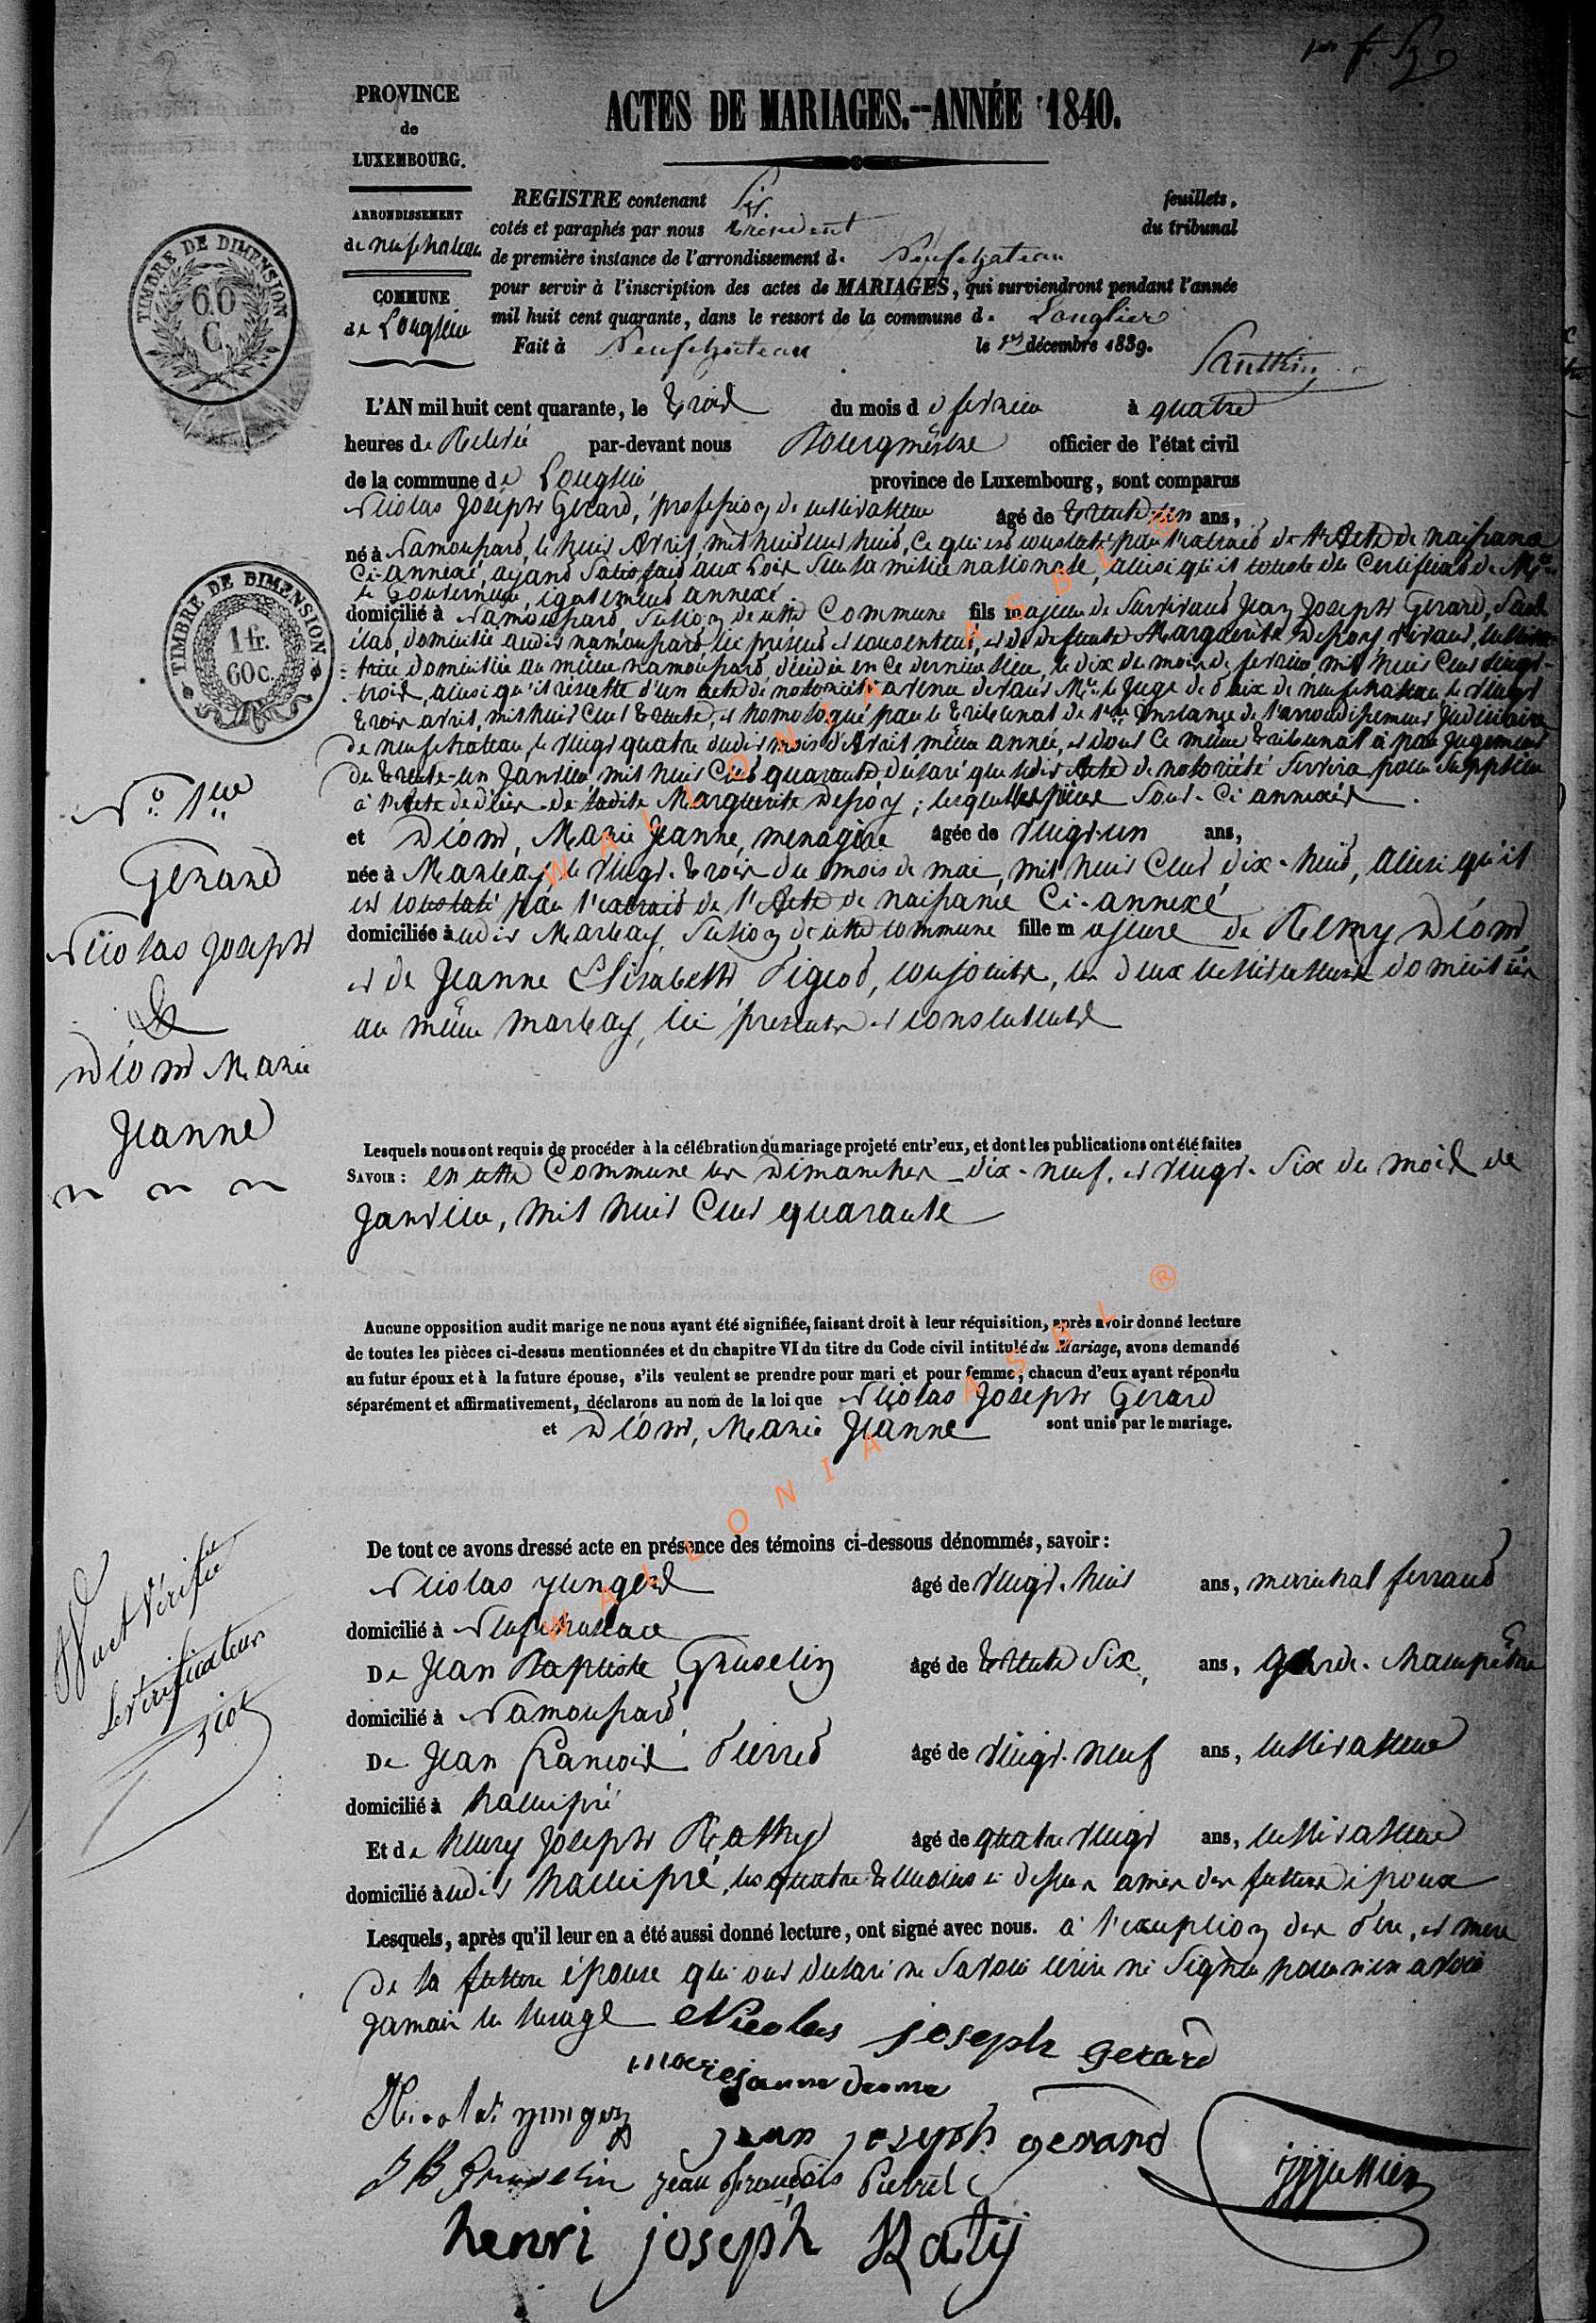 PROVINCE
de
LUXEMBOURG.
ARRONDISSEMENT
de neufchateau
COMMUNE
de Longlier
ACTES DE MARIAGES.--ANNÉE 1840.
REGISTRE contenant Six feuillets,
cotés et paraphés par nous Président du tribunal
de première instance de l'arrondissement d. Neufchateau
pour servir à l'inscription des actes de MARIAGES, qui surviendront pendant l'année
mil huit cent quarante, dans le ressort de la commune d. Longlier
Fait à Neufchateau le décembre 1839.
TIMBRE DE DIMENSION
60
C.
L'AN mil huit cent quarante, le trois du mois de fevrier à quatre
heures de Relevée par-devant nous Bourgmestre officier de l'état civil
de la commune de Longlier province de Luxembourg, sont comparus
Nicolas Joseph Gerard, profession de cultivateur âgé de trente-un ans,
né à Namoussard, le huit Avril, mil huit cent huit, ce qui est constaté par l'extrait de l'Acte de naissance
Ci-annexé, ayant satisfait aux Loix sur la milice nationale, ainsi qu'il conste du Certificat de Mr.
le Gouverneur, également annexé
TIMBRE DE DIMENSION
1 fr.
60 c.
domicilié à Namoussard Section de cette Commune fils majeur de survivant Jean Joseph Gerard, sans
état, domicilié audit namoussard, ici présent et consentant, et de defunte Marguerite Depoy vivant, cultiva-
trice domiciliée au même namoussard, décédée en ce dernier lieu, le dix du mois de fevrier mil huit cent vingt-
trois, ainsi qu'il résulte d'un acte de notoriété avenu devant Mr. le Juge de Paix de neufchateau le vingt
trois avril, mil huit cent trente, et homologué par le tribunal de 1ere Instance de l'arrondissement Judiciaire
de neufchateau, le vingt quatre dudit mois d'Avril même année, et dont ce même tribunal a par Jugement
du trente-un Janvier mil huit Cent quarante, déclaré que ledit Acte de notoriété servira pour suppléer
à l'Acte de décès de ladite Marguerite Depoy; lesquelles pièces sont Ci annexées.
et Diom, Marie Jeanne, menagère âgée de vingt-un ans,
née à Marbay, le vingt-trois du mois de mai, mil huit Cent dix-huit, ainsi qu'il
est constaté par l'extrait de l'Acte de naissance Ci-annexé
domiciliée audit Marbay, Section de cette commune fille majeure de Remy Diom
et de Jeanne Elisabeth Pigeot, conjoints, les deux cultivateurs domiciliés
au même marbay, ici présents et consentants
No. 1er
Gerard
Nicolas Joseph
&
Diom Marie
Jeanne
Lesquels nous ont requis de procéder à la célébration du mariage projeté entr'eux, et dont les publications ont été faites
SAVOIR : en cette Commune les Dimanches dix-neuf, et vingt-six du mois de
Janvier, mil huit Cent quarante
Aucune opposition audit marige ne nous ayant été signifiée, faisant droit à leur réquisition, après avoir donné lecture
de toutes les pièces ci-dessus mentionnées et du chapitre VI du titre du Code civil intitulé du Mariage, avons demandé
au futur époux et à la future épouse, s'ils veulent se prendre pour mari et pour femme; chacun d'eux ayant répondu
séparément et affirmativement, déclarons au nom de la loi que Nicolas Joseph Gerard
et Diom, Marie Jeanne sont unis par le mariage.
De tout ce avons dressé acte en présence des témoins ci-dessous dénommés, savoir :
Nicolas yungers âgé de vingt-huit ans, maréchal ferrand
domicilié à Neufchateau
De Jean Baptiste Gruselin âgé de trente six, ans, garde-champêtre
domicilié à Namoussard
De Jean François Pierret âgé de vingt-neuf ans, cultivateur
domicilié à hamipré
Et de henry Joseph Rathy âgé de quatre vingt ans, cultivateur
domicilié audit hamipré, les quatre témoins ci dessus amis des futurs époux
Lesquels, après qu'il leur en a été aussi donné lecture, ont signé avec nous. à l'exception des Père, et mere
de la future épouse qui ont declaré ne savoir écrire ni signer pour n'en avoir
jamais eu l'usage
Vu et Vérifié
Le Vérificateur
Nicolas joseph gerard
marie jeanne diome
Nicolas yungers
jean joseph gerard
J B Gruselin jean françois Pierret
henri joseph Raty
WALLONIA ASBL ®
WALLONIA ASBL ®